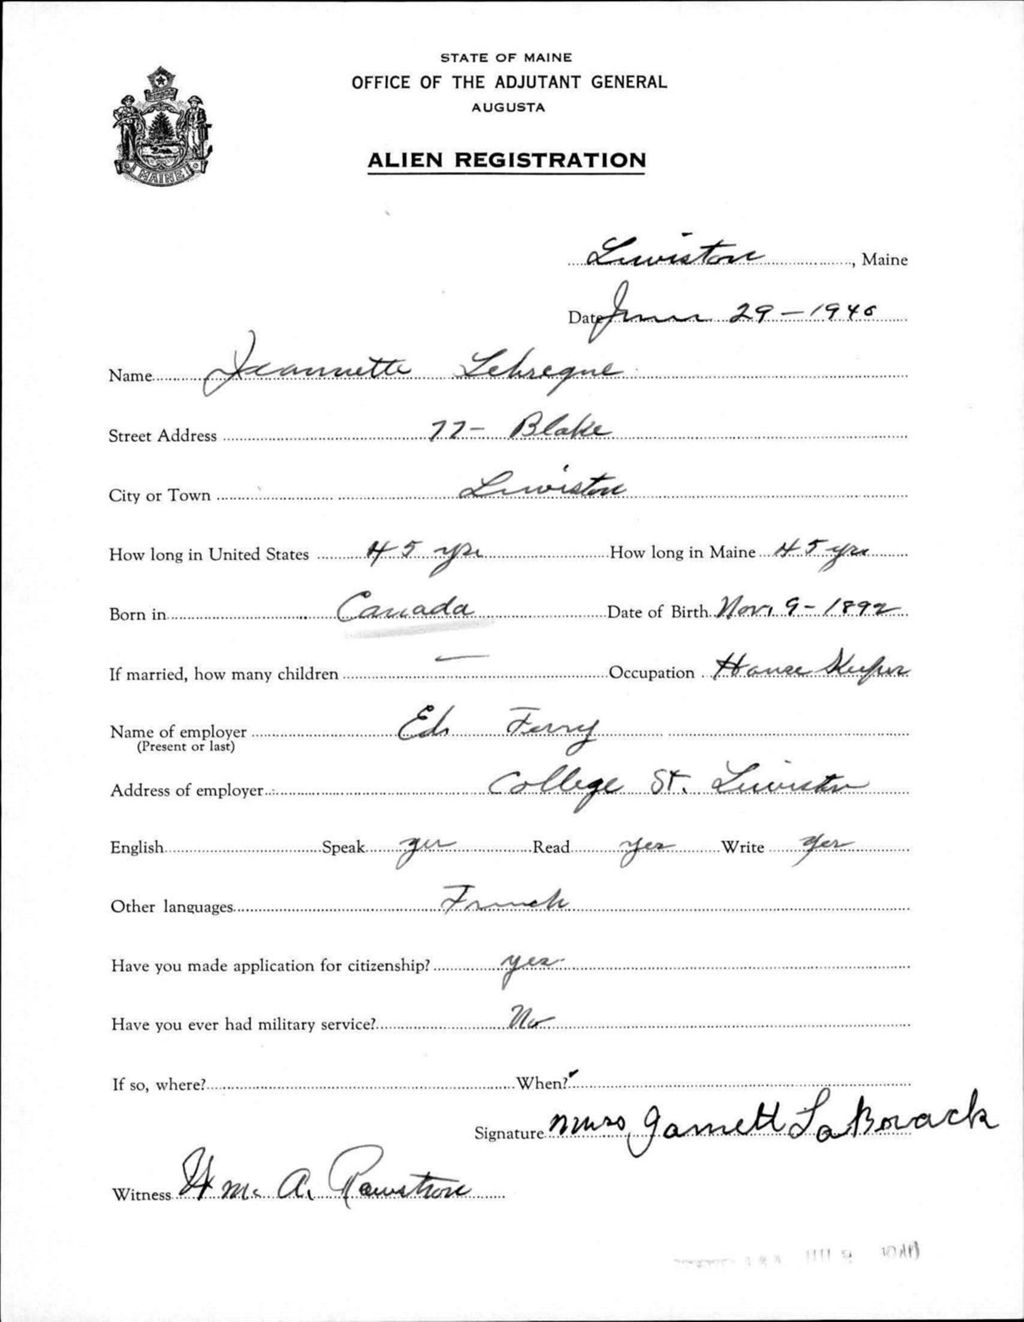 STATE OF MAINE
OFFICE OF THE ADJUTANT GENERAL
AUGUSTA
MAINE
ALIEN REGISTRATION
Lewiston, Maine
Date June 29-1940
Name Jeannette Lebreque
Street Address 77- Blake
City or Town Lewiston
How long in United States 45 yrs How long in Maine 45 yrs
Born in Canada Date of Birth Nov, 9-1892
If married, how many children — Occupation House Keeper
Name of employer Ed. Ferry
(Present or last)
Address of employer College St. Lewiston
English Speak yes Read yes Write yes
Other languages French
Have you made application for citizenship? yes
Have you ever had military service? No
If so, where? When?
Signature Garnett LaBorack
Witness Wm. A. Rawstron